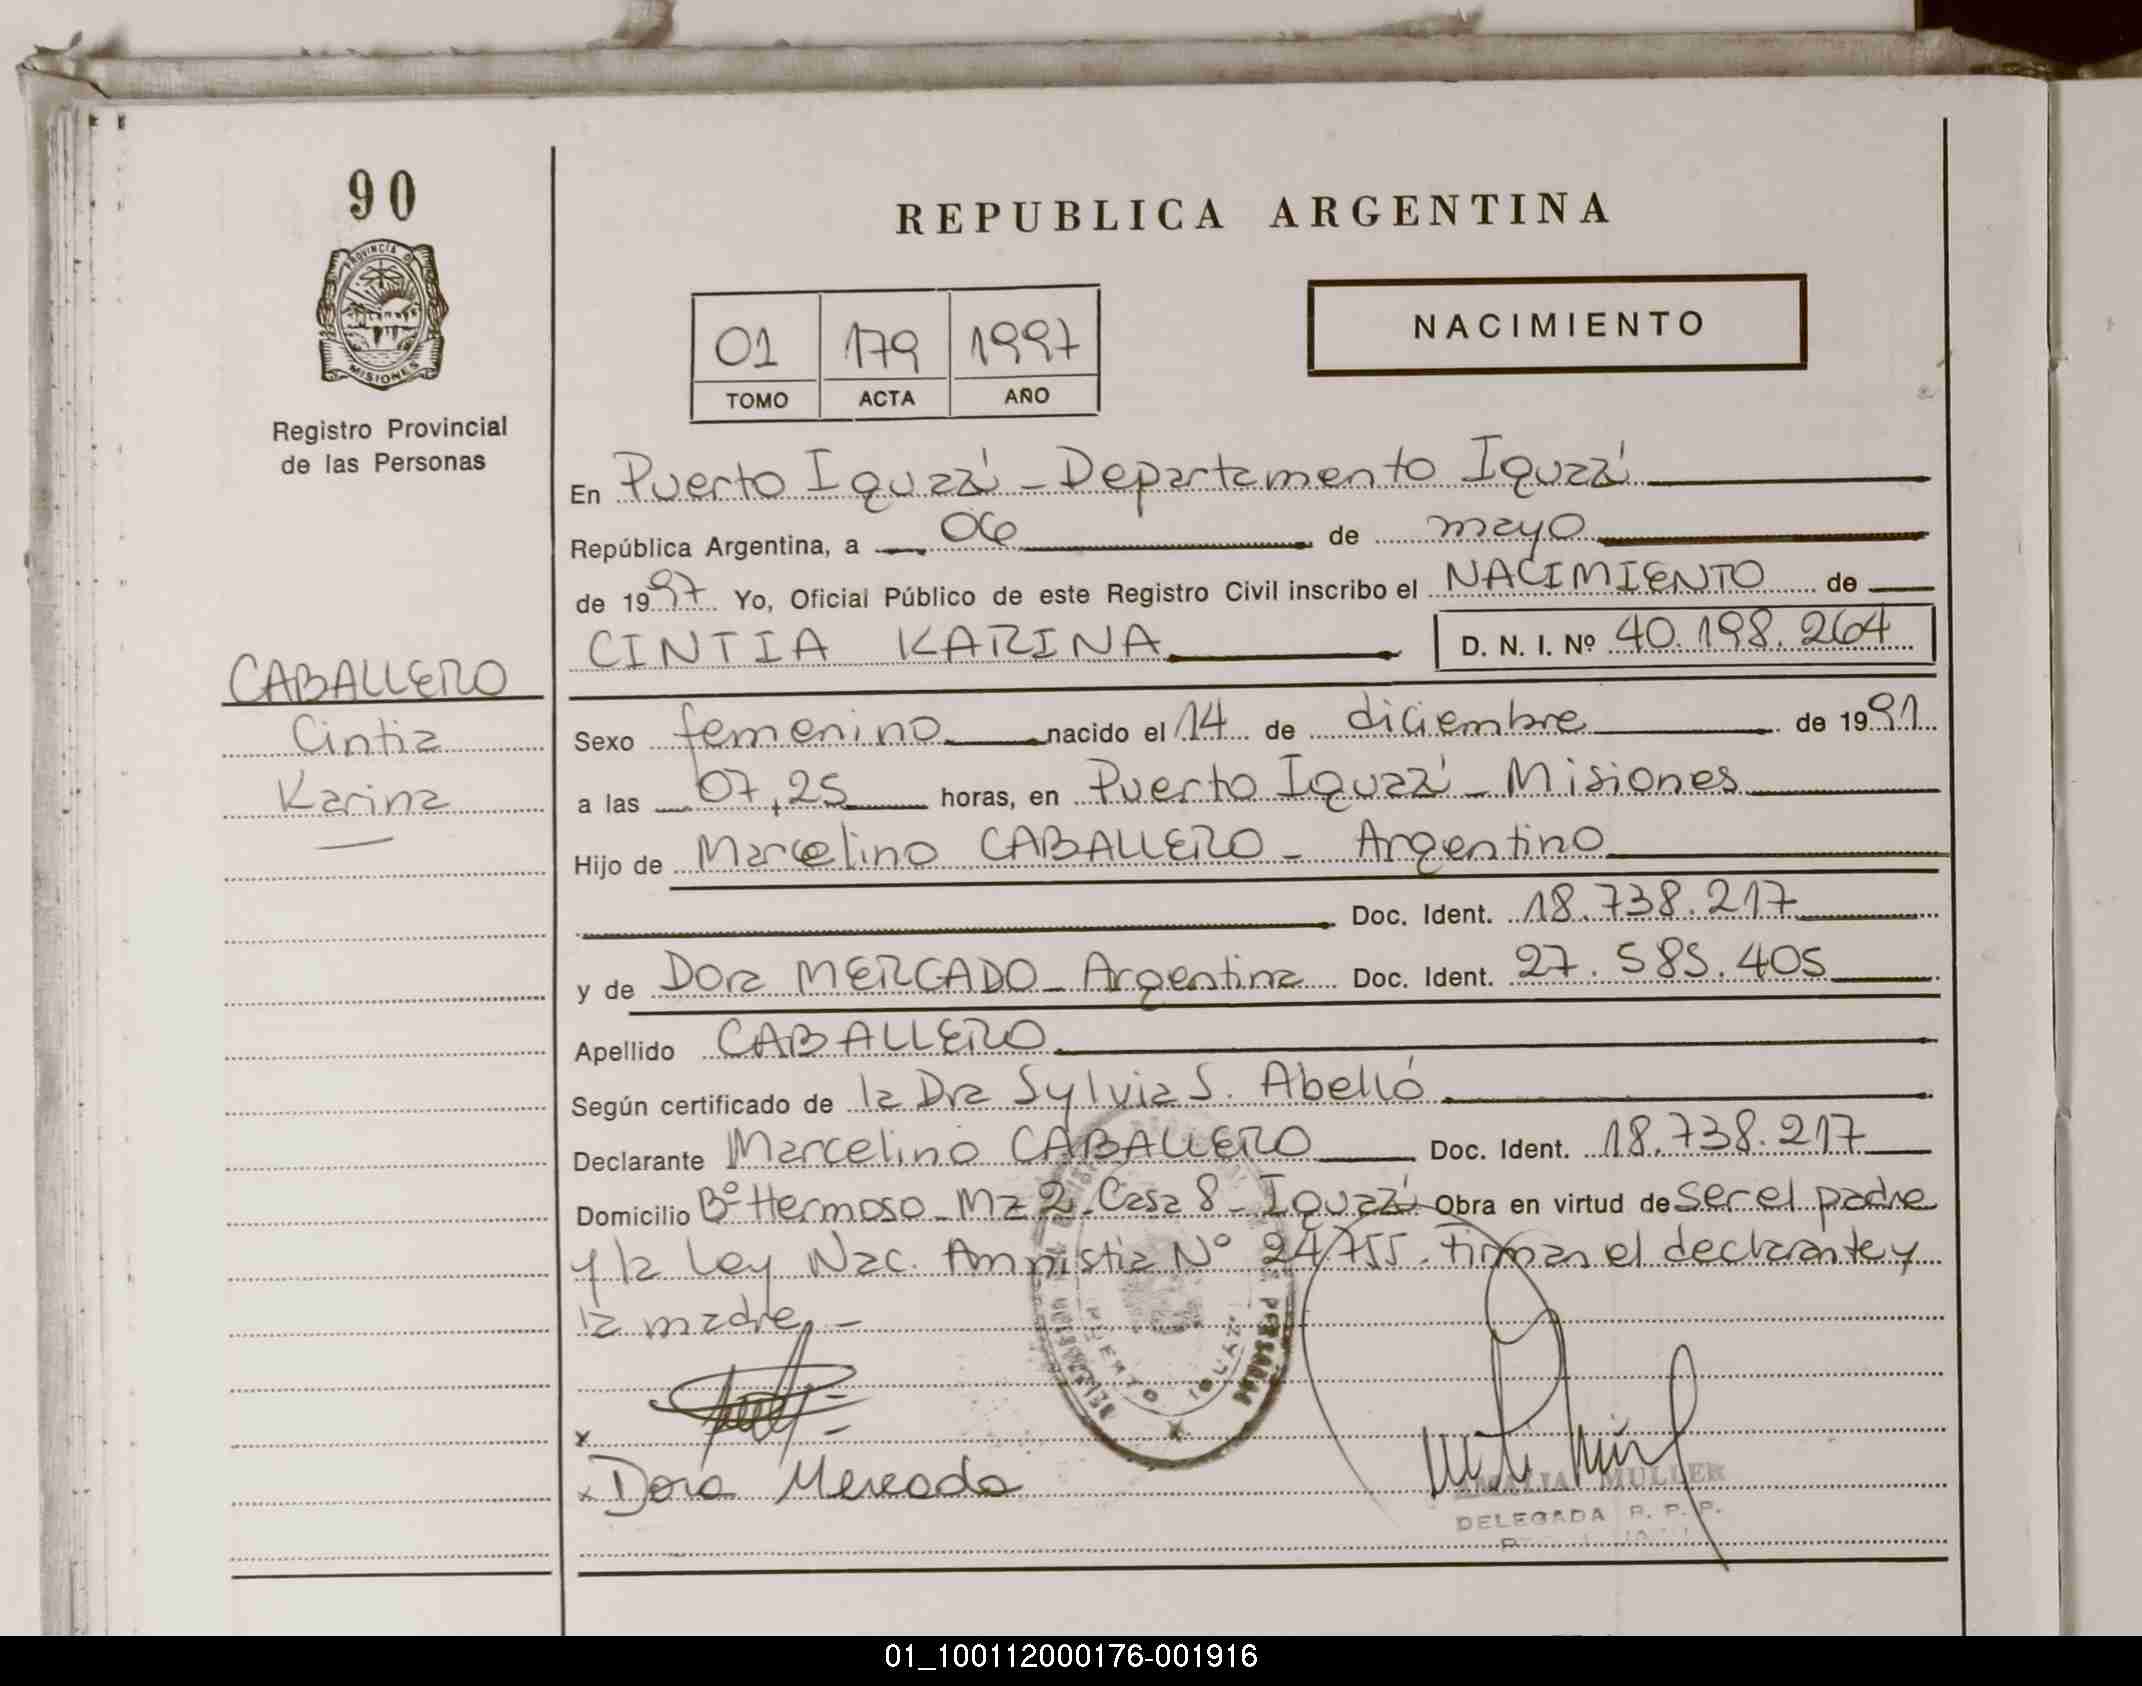 90
PROVINCIA DE
MISIONES
Registro Provincial
de las Personas
REPUBLICA ARGENTINA
01 179 1997
TOMO ACTA AÑO
NACIMIENTO
En Puerto Iguazú - Departamento Iguazú
República Argentina, a 06 de mayo
de 1997 Yo, Oficial Público de este Registro Civil inscribo el NACIMIENTO de
CINTIA KARINA D. N. I. Nº 40.198.264
CABALLERO
Cintia
Karina
Sexo femenino nacido el 14 de diciembre de 1991
a las 07,25 horas, en Puerto Iguazú - Misiones
Hijo de Marcelino CABALLERO - Argentino
Doc. Ident. 18.738.217
y de Dora MERCADO - Argentina Doc. Ident. 27.585.405
Apellido CABALLERO
Según certificado de la Dra Sylvia S. Abelló
Declarante Marcelino CABALLERO Doc. Ident. 18.738.217
Domicilio Bº Hermoso - Mz 2 - Casa 8 - Iguazú Obra en virtud de ser el padre
y la Ley Nac. Amnistia Nº 24.755. Firman el declarante y
la madre. -
PUERTO IGUAZU
x
x Dora Mercado
AMALIA MULLER
DELEGADA R. P. P.
01_100112000176-001916